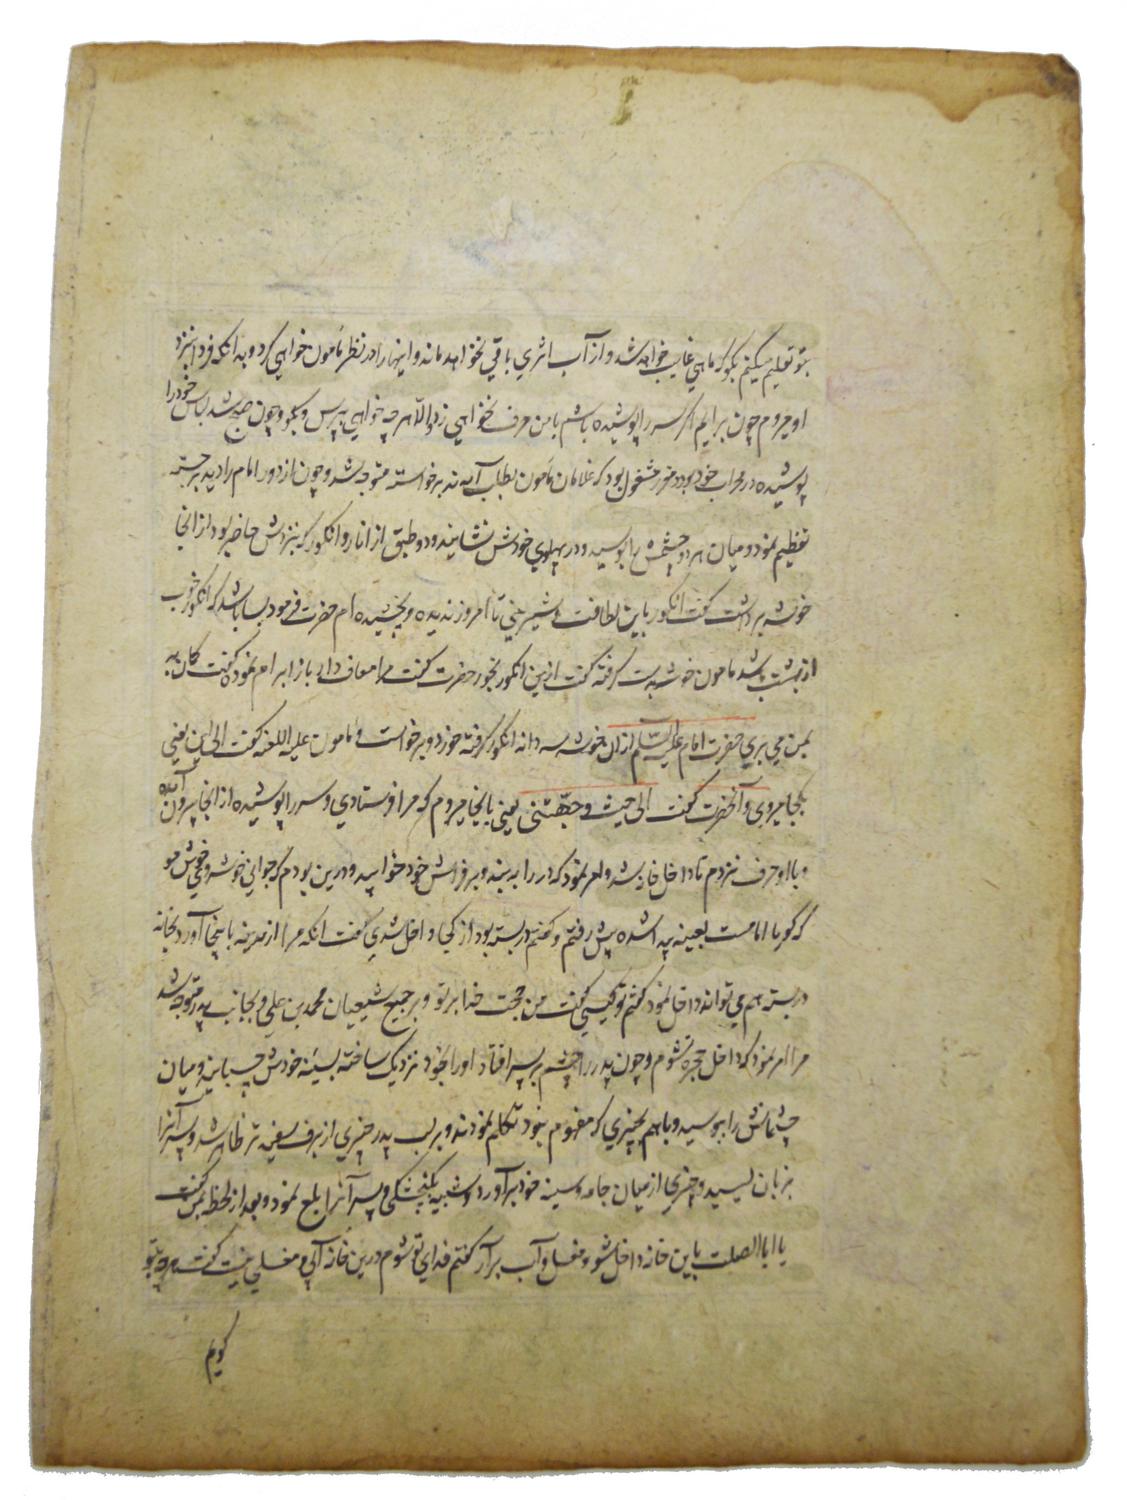 بتو تعلیم میکنم بگو که ماهی غایب خواهد شد و از آب اثری باقی نخواهد ماند و اینها را در نظر مأمون خواهی کرد و بدانکه فردا نزد
او میروم چون برایم اگر سر را پوشیده باشم با من حرف نخواهی زد والا هر چه خواهی بپرس و بگو و چون صبح شد لباس خود را
پوشیده در محراب خود بود و مشغول بود که غلامان مأمون بطلب آمدند برخواسته متوجه شد و چون از دور امام را دید برجسته
تعظیم نمود و میان هر دو چشمش را بوسید و در پهلوی خودش نشانید و دو طبق از انار و انگور که نزدش حاضر بود از آنجا
خوشه برداشت گفت انگور باین لطافت و شیرینی تا امروز ندیده و نچشیده ام حضرت فرمود بسا باشد که انگور خوب
از بهشت باشد مأمون خوشه بدست گرفته گفت ازین انگور بخور حضرت گفت مرا معاف دار باز ابرام نموده گفت گمان بد
بمن می بری حضرت امام علیه السلم از ان خوشه سه دانه انگور گرفته خورد و برخواست و مأمون علیه اللعنه گفت الی این یعنی
بکجا میروی و آنحضرت گفت الی حیث وجهتنی یعنی بانجا میروم که مرا فرستادی و سر را پوشیده از انجا بیرون آمده
و با او حرف نزدم تا داخل خانه شد و امر نمود که در را به بند و بر فراش خود خوابید و درین بودم که جوانی خوشرو خوش مو
که گویا امامست بعینه پیدا شده پیش رفتم و گفتم در بسته بود از کجا داخل شدی گفت انکه مرا از مدینه باینجا آورد بخانه
در بسته هم می تواند داخل نمود گفتم تو کیستی گفت من حجت خدا بر تو و بر جمیع شیعیان محمد بن علی و بجانب پدر متوجه شد
مرا امر نمود که داخل حجره نشوم و چون پدر را چشم بر پسر افتاد او را بخود نزدیک ساخته بسینه خودش چسبانید و میان
چشمانش را ببوسید و باهم بچیزی که مفهوم نبود تکلم نمودند و بر لب پدر چیزی از برف سفید تر ظاهر شد و پسر آنرا
بزبان لیسید و چیزی از میان جامه و سینه خود برآورد و شبیه بگنجشکی و پسر آنرا بلع نمود و بعد از لحظه بمن گفت
یا ابا الصلت باین خانه داخل شو و مغسل و آب برآر گفتم فدای تو شوم درین خانه آبی و مغسلی نیست گفت هرچه بتو
گویم